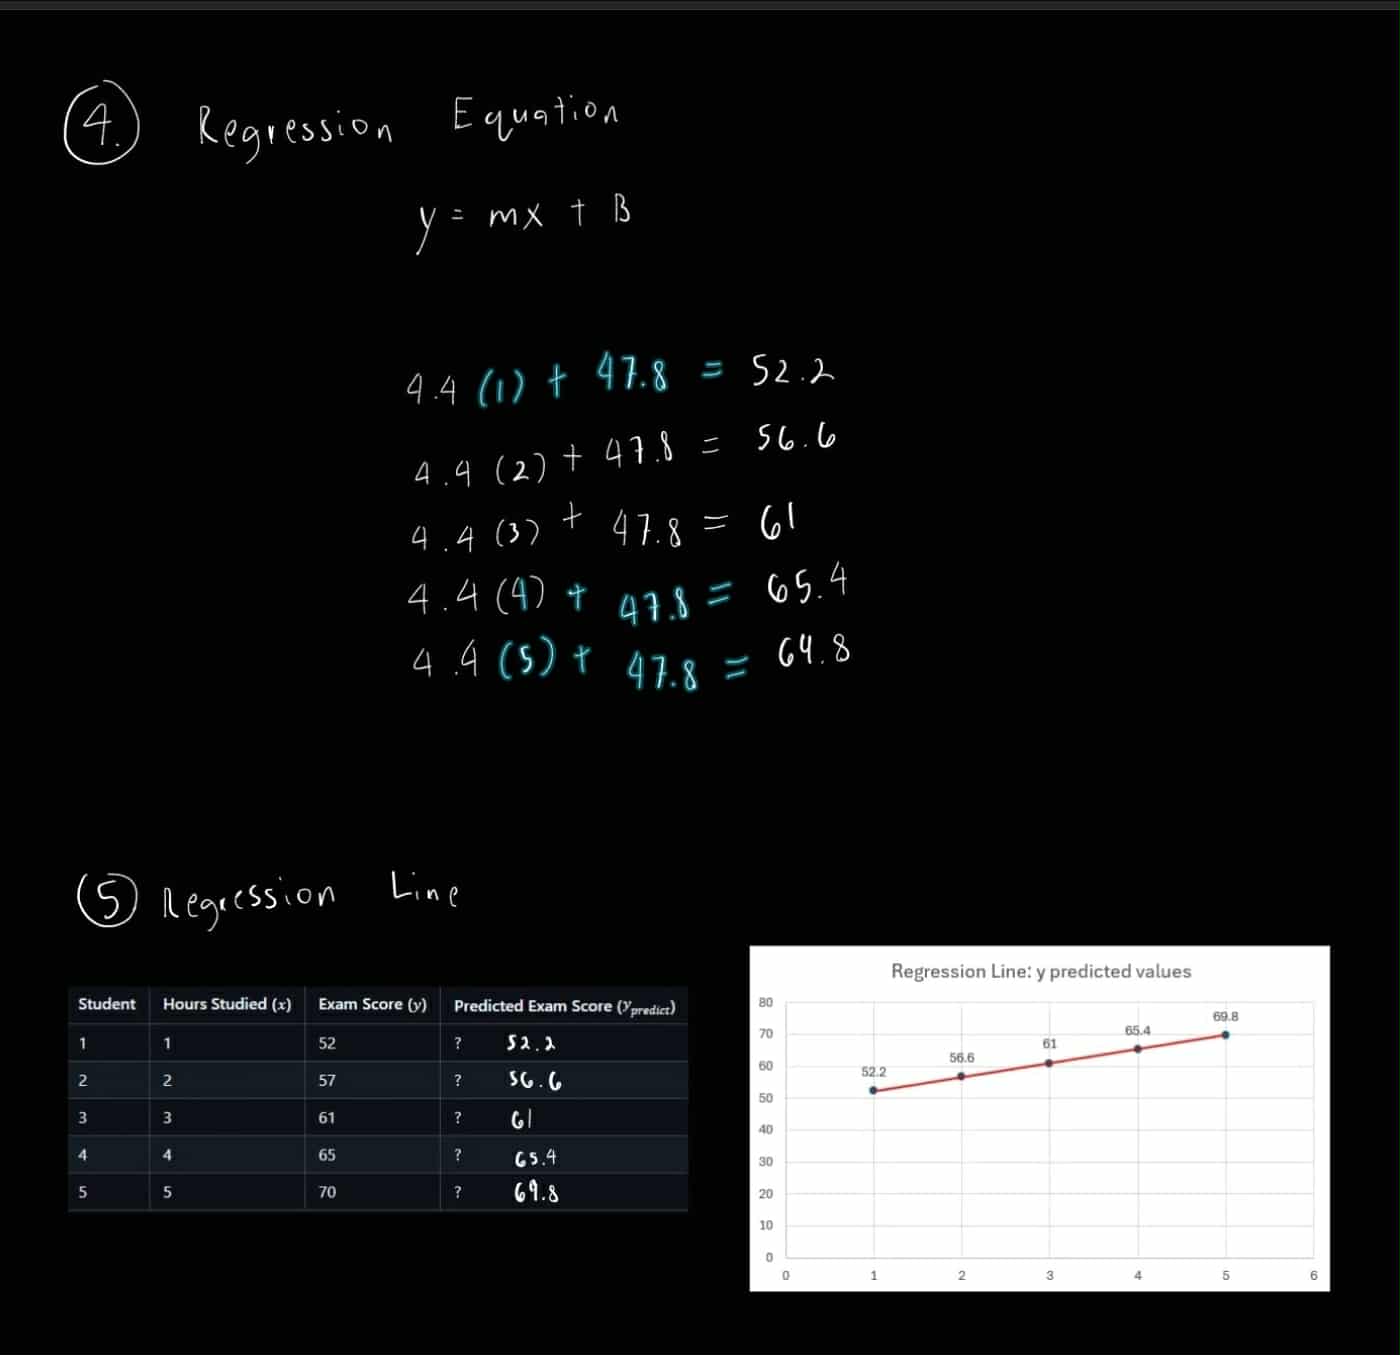 4. Regression Equation
y = mx + B
4.4 (1) + 47.8 = 52.2
4.4 (2) + 47.8 = 56.6
4.4 (3) + 47.8 = 61
4.4 (4) + 47.8 = 65.4
4.4 (5) + 47.8 = 64.8
5 Regression Line
Student Hours Studied (x) Exam Score (y) Predicted Exam Score (y predict)
1 1 52 ? 52.2
2 2 57 ? 56.6
3 3 61 ? 61
4 4 65 ? 65.4
5 5 70 ? 69.8
Regression Line: y predicted values
80
70
60
50
40
30
20
10
0
52.2
56.6
61
65.4
69.8
0 1 2 3 4 5 6